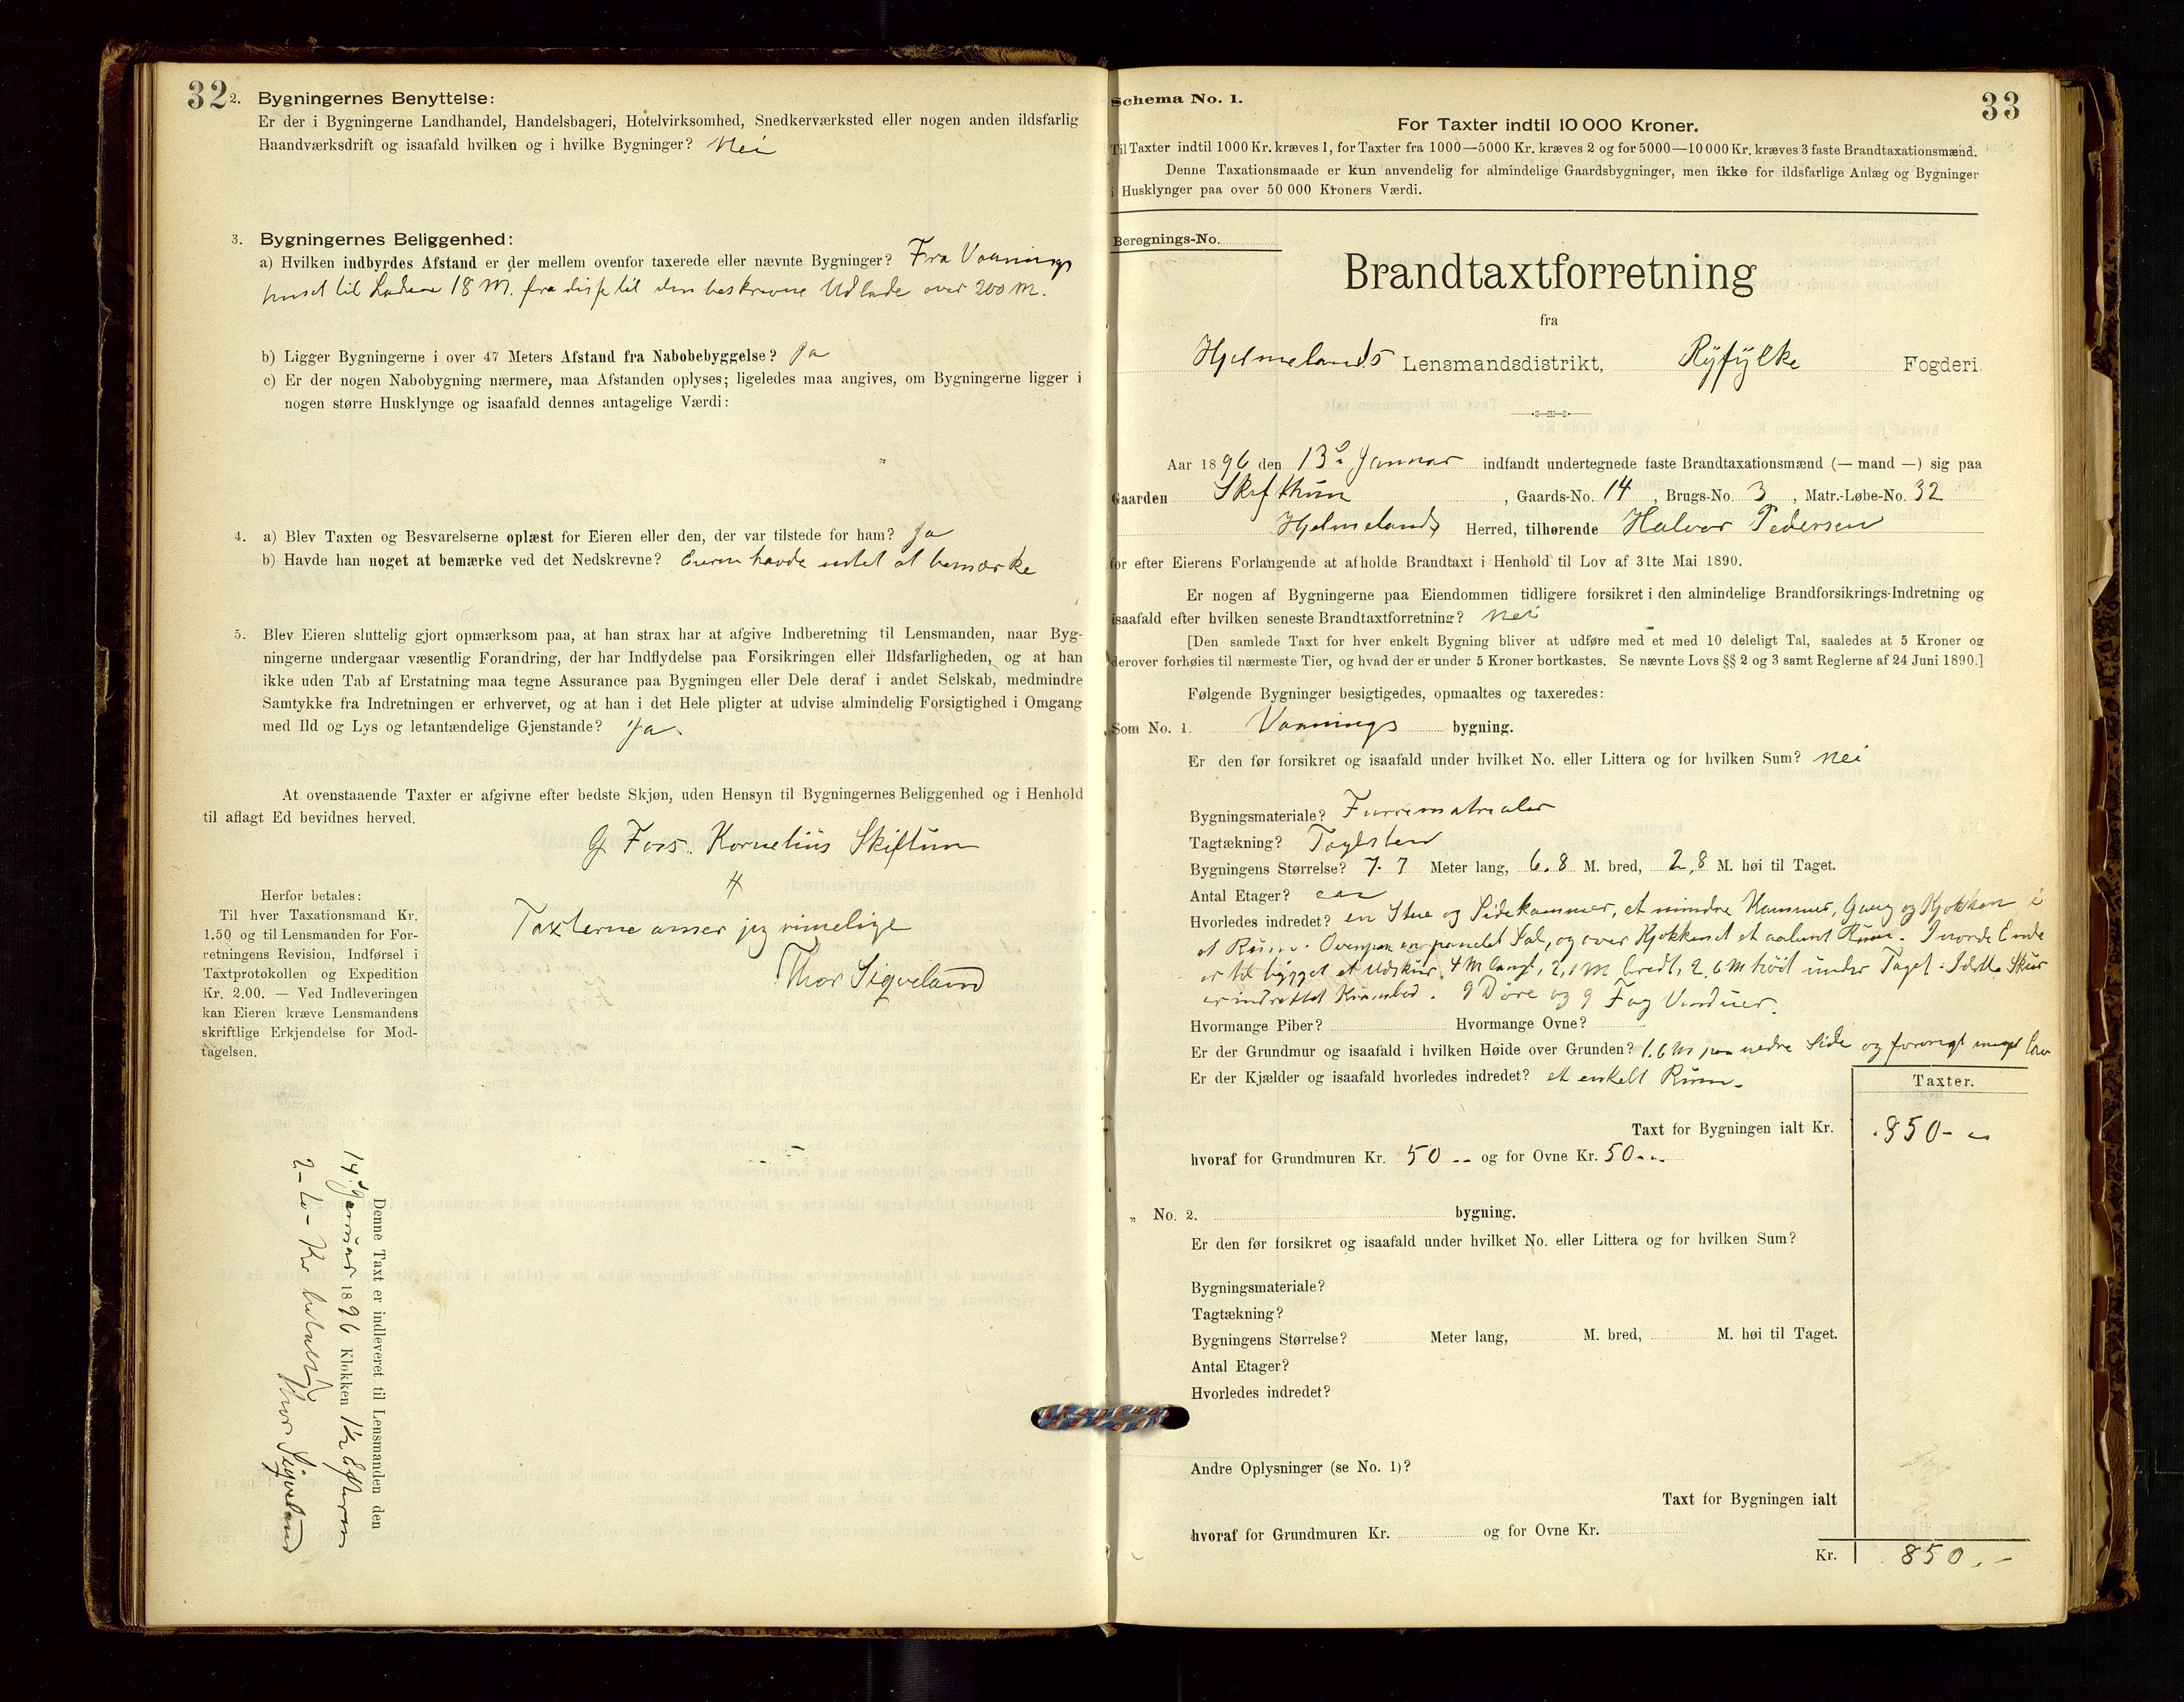 32
2. Bygningernes Benyttelse:
Er der i Bygningerne Landhandel, Handelsbageri, Hotelvirksomhed, Snedkerværksted eller nogen anden ildsfarlig
Haandværksdrift og isaafald hvilken og i hvilke Bygninger? Nei
3. Bygningernes Beliggenhed:
a) Hvilken indbyrdes Afstand er der mellem ovenfor taxerede eller nævnte Bygninger? Fra Vaanings
huset til Laden 18 M. fra disse til den beskrevne Udlade over 200 M.
b) Ligger Bygningerne i over 47 Meters Afstand fra Nabobebyggelse? Ja
c) Er der nogen Nabobygning nærmere, maa Afstanden oplyses; ligeledes maa angives, om Bygningerne ligger i
nogen større Husklynge og isaafald dennes antagelige Værdi:
4. a) Blev Taxten og Besvarelserne oplæst for Eieren eller den, der var tilstede for ham? Ja
b) Havde han noget at bemærke ved det Nedskrevne? Eieren havde intet at bemærke
5. Blev Eieren sluttelig gjort opmærksom paa, at han strax har at afgive Indberetning til Lensmanden, naar Byg-
ningerne undergaar væsentlig Forandring, der har Indflydelse paa Forsikringen eller Ildsfarligheden, og at han
ikke uden Tab af Erstatning maa tegne Assurance paa Bygningen eller Dele deraf i andet Selskab, medmindre
Samtykke fra Indretningen er erhvervet, og at han i det Hele pligter at udvise almindelig Forsigtighed i Omgang
med Ild og Lys og letantændelige Gjenstande? Ja.
At ovenstaaende Taxter er afgivne efter bedste Skjøn, uden Hensyn til Bygningernes Beliggenhed og i Henhold
til aflagt Ed bevidnes herved.
G Fors. Kornelius Skiftun
Herfor betales:
Til hver Taxationsmand Kr.
1.50 og til Lensmanden for For-
retningens Revision, Indførsel i
Taxtprotokollen og Expedition
Kr. 2.00. — Ved Indleveringen
kan Eieren kræve Lensmandens
skriftlige Erkjendelse for Mod-
tagelsen.
Taxterne anser jeg rimelige
Thor Sigveland
Denne Taxt er indleveret til Lensmanden den
14 Januar 1896 Klokken 1½ Efterm
2 - to - Kr betalt
Thor Sigveland
33
Schema No. 1.
For Taxter indtil 10 000 Kroner.
Til Taxter indtil 1000 Kr. kræves 1, for Taxter fra 1000—5000 Kr. kræves 2 og for 5000—10 000 Kr. kræves 3 faste Brandtaxationsmænd.
Denne Taxationsmaade er kun anvendelig for almindelige Gaardsbygninger, men ikke for ildsfarlige Anlæg og Bygninger
i Husklynger paa over 50 000 Kroners Værdi.
Beregnings-No.
Brandtaxtforretning
fra
Hjelmelands Lensmandsdistrikt, Ryfylke Fogderi.
Aar 1896 den 13 Januar indfandt undertegnede faste Brandtaxationsmænd (— mand —) sig paa
Gaarden Skifthun, Gaards-No. 14, Brugs-No. 3, Matr.-Løbe-No. 32
Hjelmelands Herred, tilhørende Halvor Pedersen
for efter Eierens Forlangende at afholde Brandtaxt i Henhold til Lov af 31te Mai 1890.
Er nogen af Bygningerne paa Eiendommen tidligere forsikret i den almindelige Brandforsikrings-Indretning og
isaafald efter hvilken seneste Brandtaxtforretning? Nei
[Den samlede Taxt for hver enkelt Bygning bliver at udføre med et med 10 deleligt Tal, saaledes at 5 Kroner og
derover forhøies til nærmeste Tier, og hvad der er under 5 Kroner bortkastes. Se nævnte Lovs §§ 2 og 3 samt Reglerne af 24 Juni 1890.]
Følgende Bygninger besigtigedes, opmaaltes og taxeredes:
Som No. 1. Vaanings bygning.
Er den før forsikret og isaafald under hvilket No. eller Littera og for hvilken Sum? Nei
Bygningsmateriale? Furrematrialer
Tagtækning? Taglsten
Bygningens Størrelse? 7.7 Meter lang, 6.8 M. bred, 2,8 M. høi til Taget.
Antal Etager? een
Hvorledes indredet? en Stue og Sidekammer, et mindre Kammer, Gang og Kjøkken i
et Rum. Ovenpaa en panelet Sal, og over Kjøkkenet et aabent Rum. I nordre Ende
er tilbygget et Udskur, 4 M langt, 2,1 M bredt, 2,6 M høit under Taget. I dette Skur
er indrettet Krambod. 9 Døre og 9 Fag Vinduer.
Hvormange Piber? Hvormange Ovne?
Er der Grundmur og isaafald i hvilken Høide over Grunden? 1.6 M paa nedre Side og forøvrigt meget lav
Er der Kjælder og isaafald hvorledes indredet? et enkelt Rum.
Taxter.
Taxt for Bygningen ialt Kr. 850 -
hvoraf for Grundmuren Kr. 50 -- og for Ovne Kr. 50 --
„ No. 2. bygning.
Er den før forsikret og isaafald under hvilket No. eller Littera og for hvilken Sum?
Bygningsmateriale?
Tagtækning?
Bygningens Størrelse? Meter lang, M. bred, M. høi til Taget.
Antal Etager?
Hvorledes indredet?
Andre Oplysninger (se No. 1)?
Taxt for Bygningen ialt
hvoraf for Grundmuren Kr. og for Ovne Kr.
Kr. 850.-